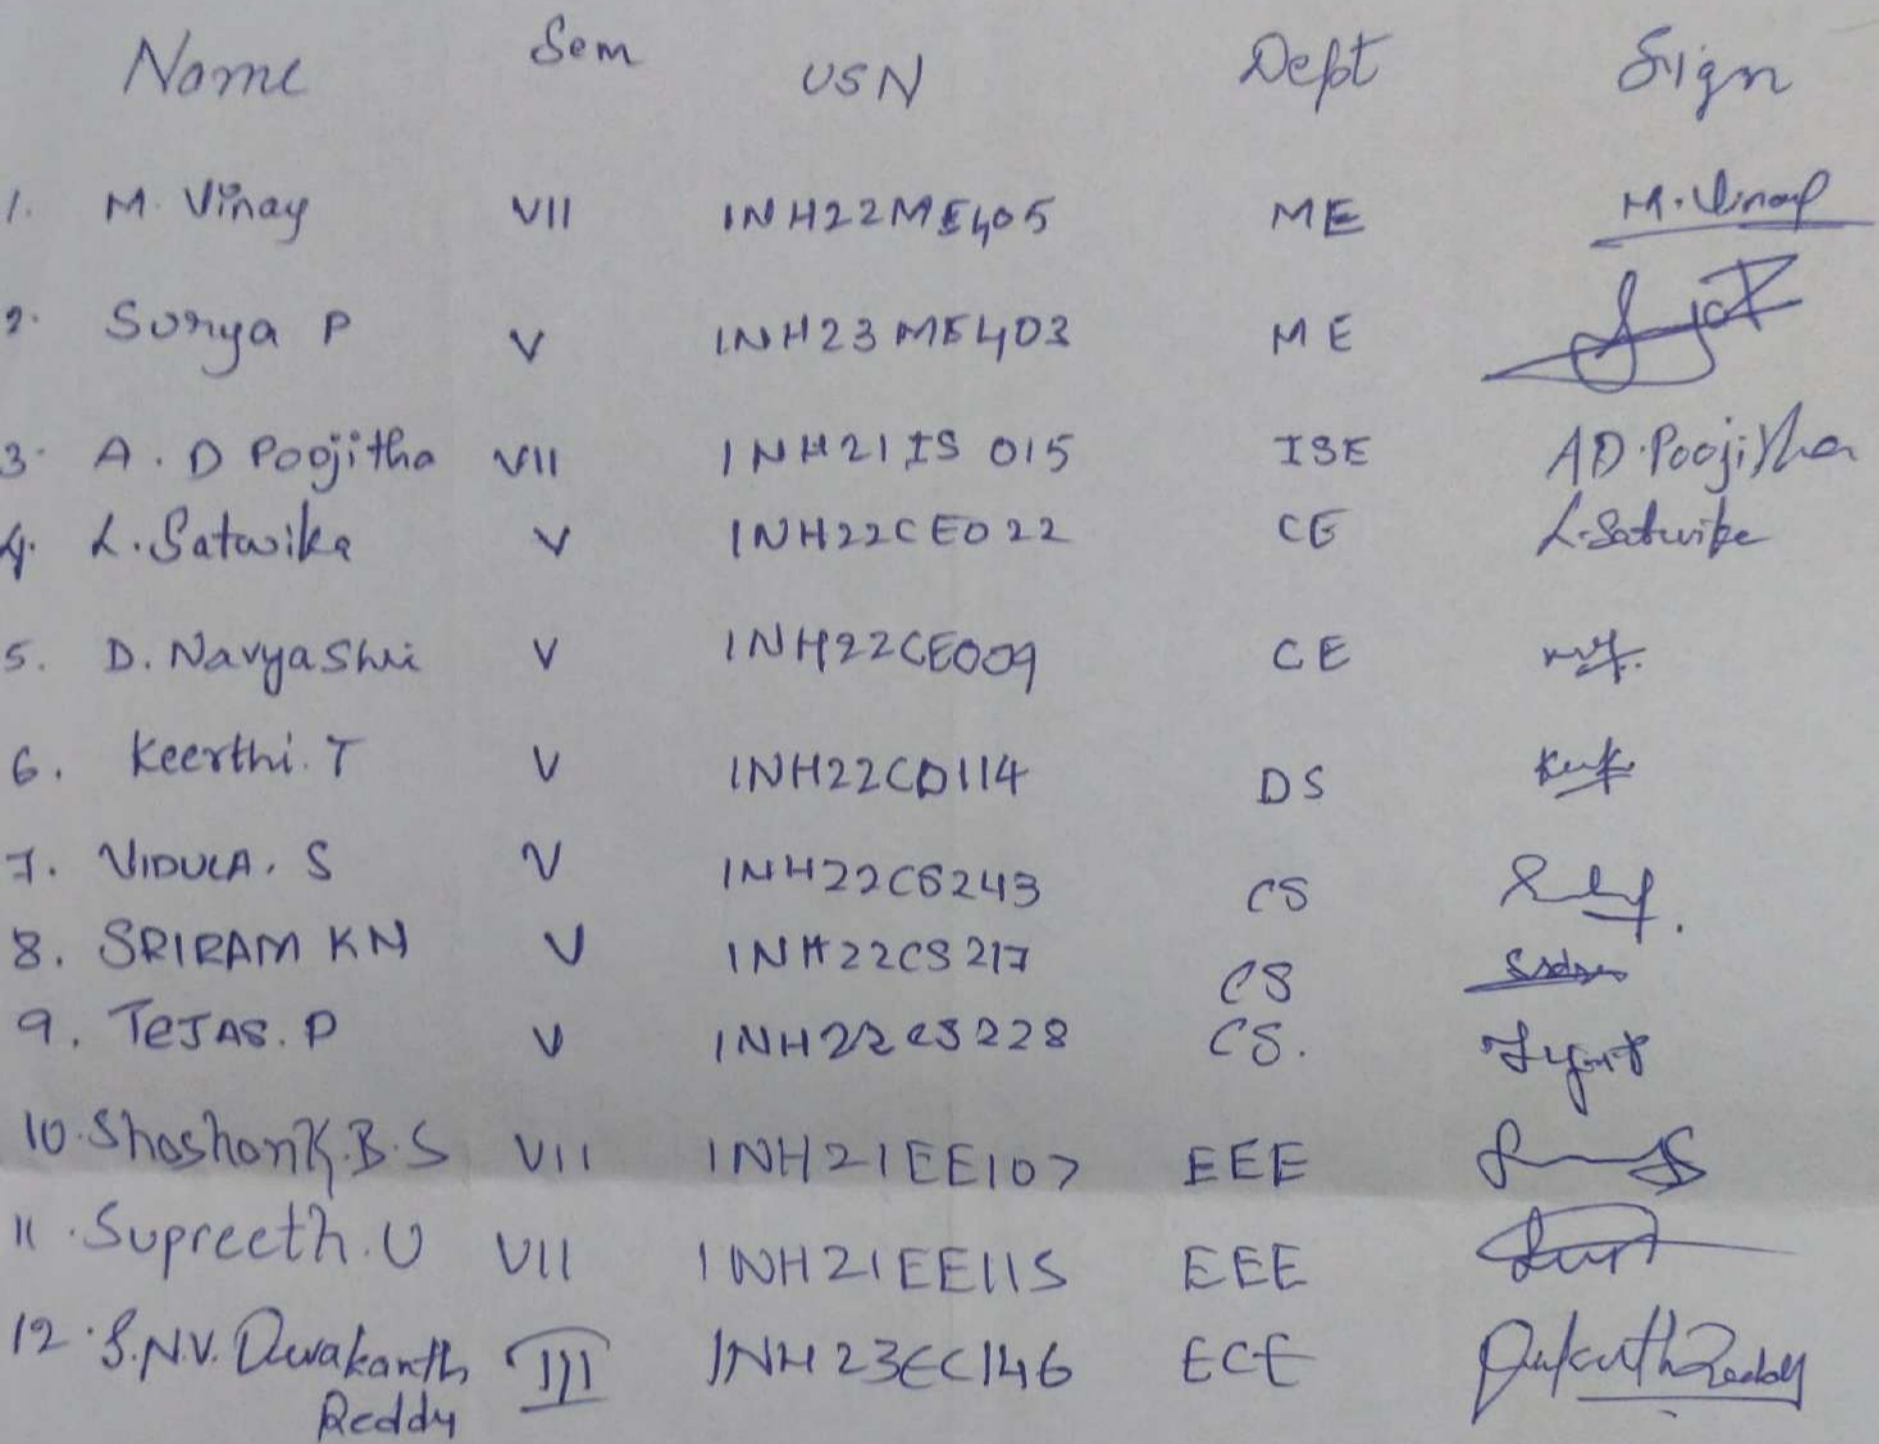 Name Sem USN Dept Sign
1. M. Vinay VII 1NH22ME405 ME M. Vinay
2. Surya P V 1NH23ME403 ME
3. A. D Poojitha VII 1NH21IS015 ISE AD. Poojitha
4. L. Satwika V 1NH22CE022 CE L. Satwika
5. D. NavyaShri V 1NH22CE009 CE
6. Keerthi. T V 1NH22CD114 DS
7. VIDULA. S V 1NH22CS243 CS
8. SRIRAM KN V 1NH22CS217 CS
9. TEJAS. P V 1NH22CS228 CS.
10. Shashank. B. S VII 1NH21EE107 EEE
11. Supreeth. U VII 1NH21EE115 EEE
12. S.N.V. Duvakanth III 1NH23EC146 ECE
Reddy